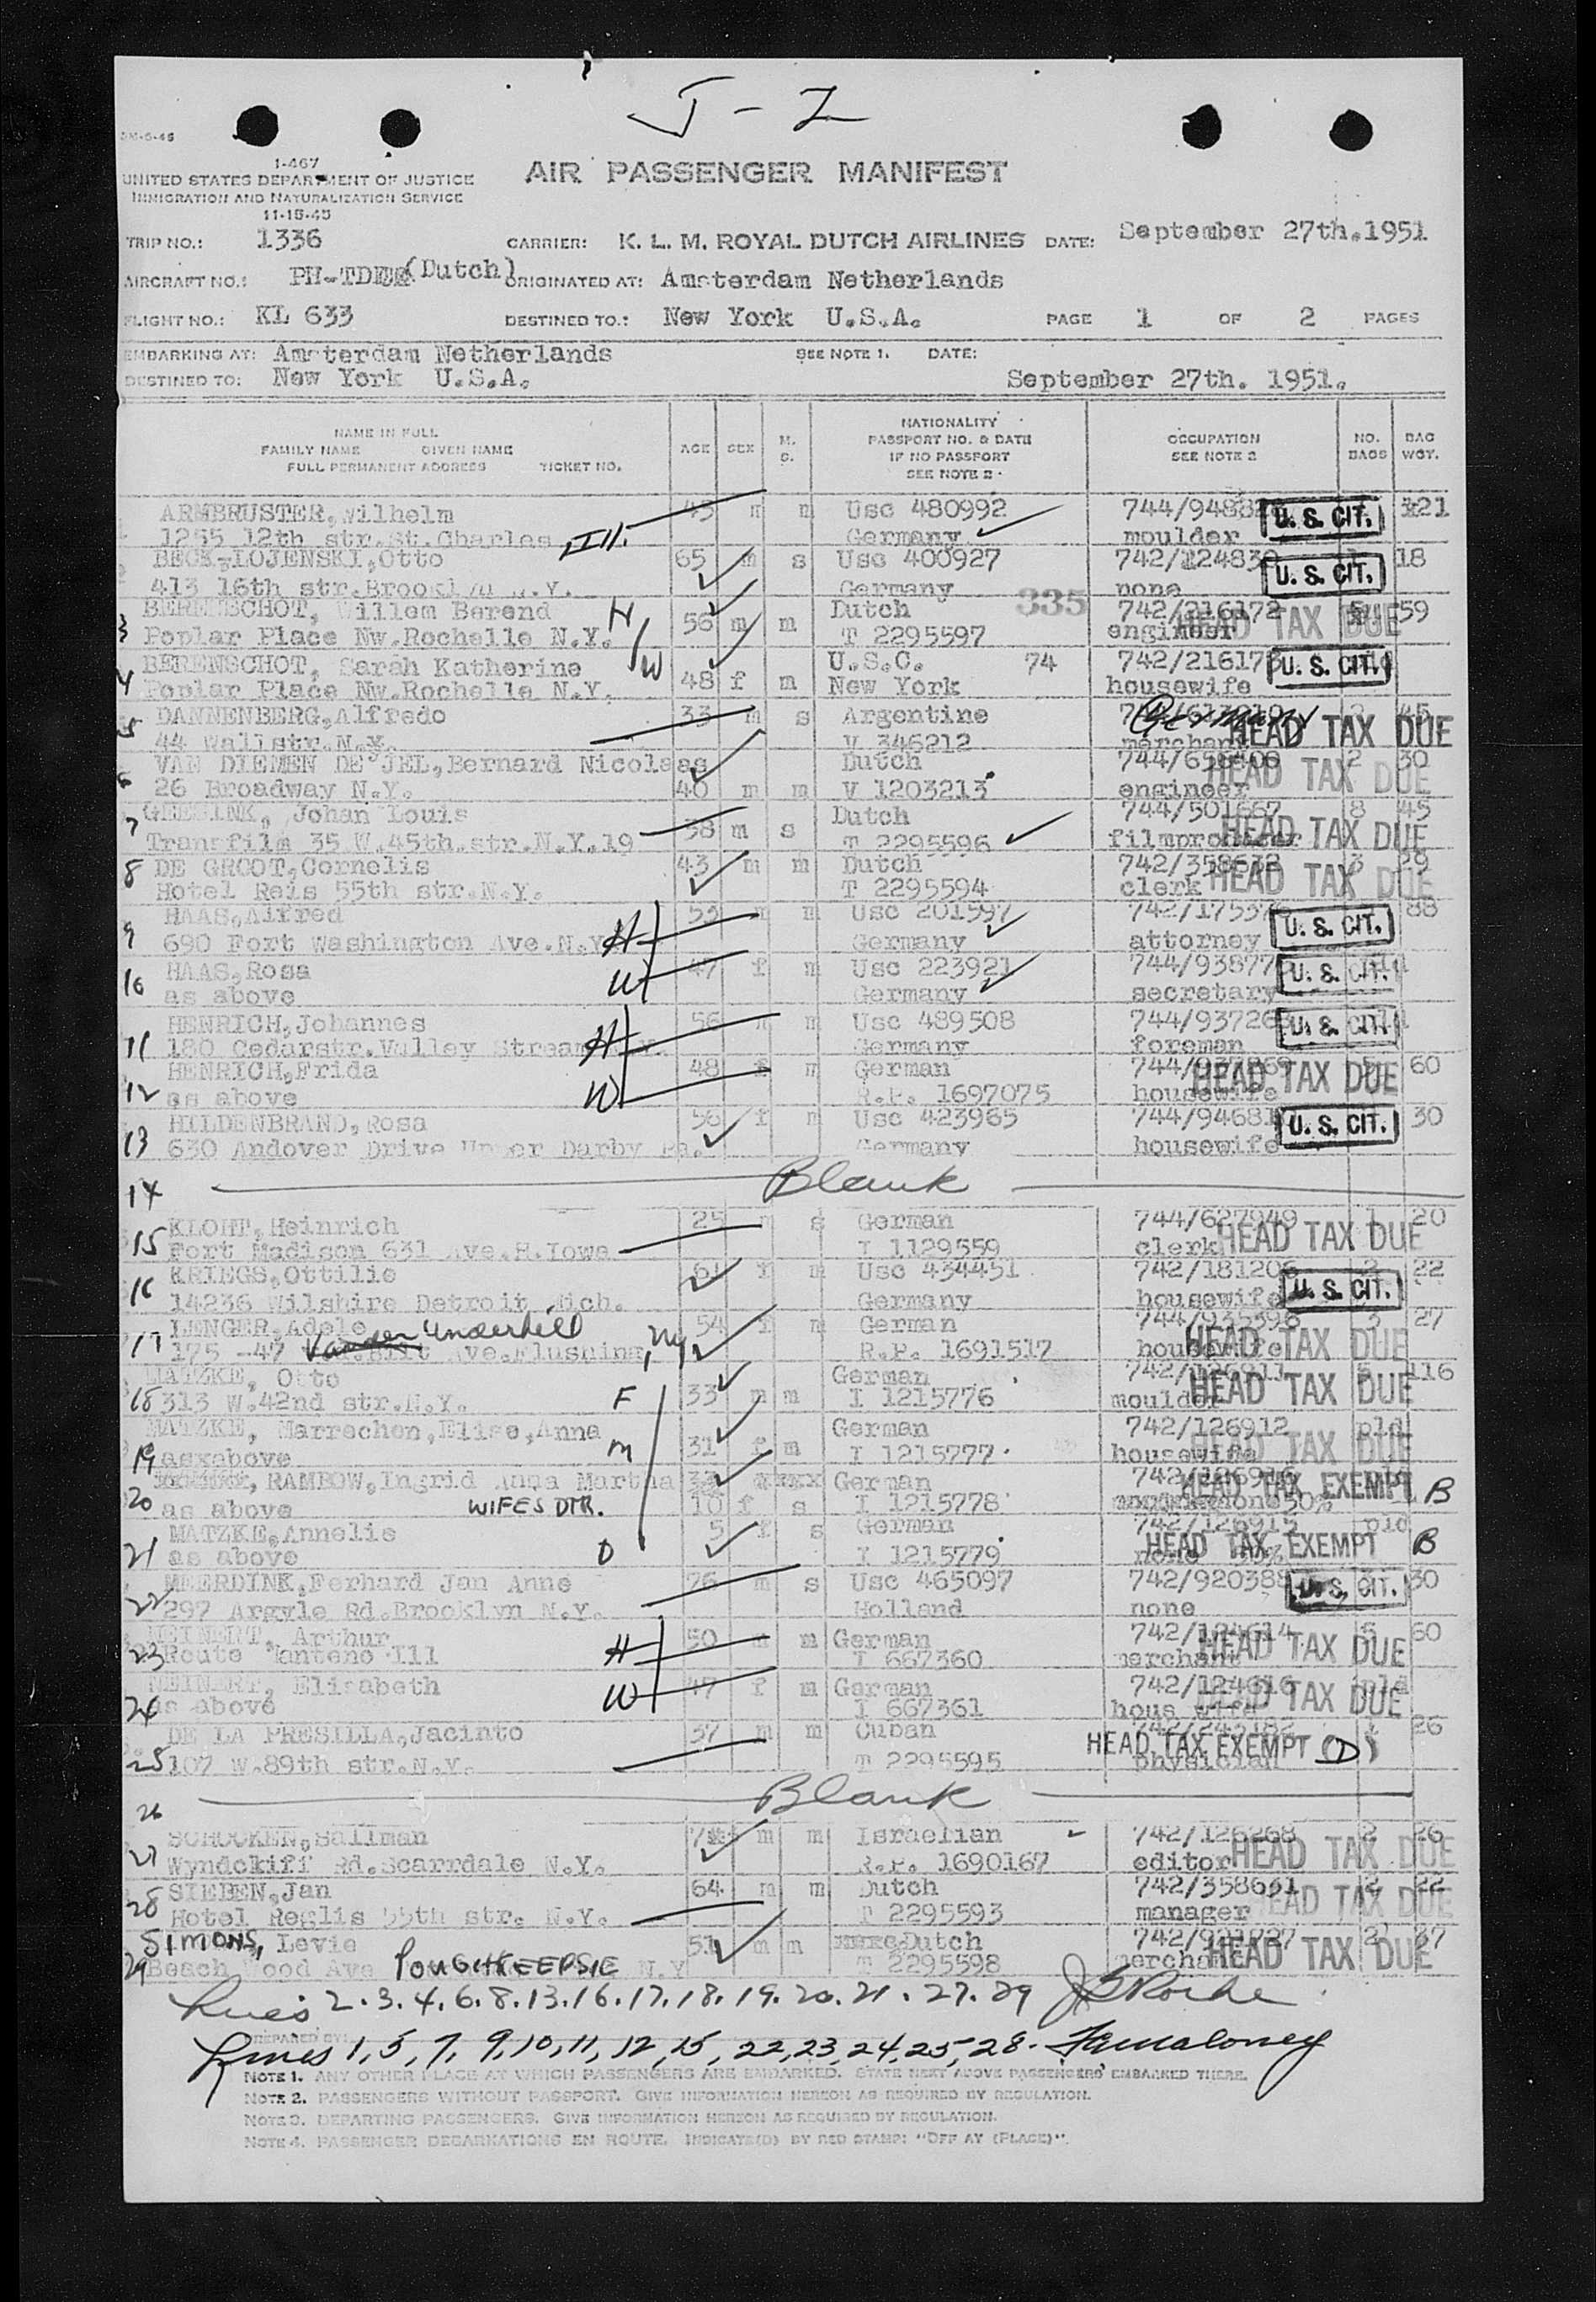 J - 2
I-467
UNITED STATES DEPARTMENT OF JUSTICE
IMMIGRATION AND NATURALIZATION SERVICE
11-15-45
AIR PASSENGER MANIFEST
TRIP NO.: 1336 CARRIER: K. L. M. ROYAL DUTCH AIRLINES DATE: September 27th.1951
AIRCRAFT NO.: PH-TDE (Dutch) ORIGINATED AT: Amsterdam Netherlands
FLIGHT NO.: KL 633 DESTINED TO.: New York U.S.A. PAGE 1 OF 2 PAGES
EMBARKING AT: Amsterdam Netherlands SEE NOTE 1. DATE:
DESTINED TO: New York U.S.A. September 27th. 1951.
NAME IN FULL
FAMILY NAME GIVEN NAME
FULL PERMANENT ADDRESS TICKET NO.
AGE SEX M. S.
NATIONALITY
PASSPORT NO. & DATE
IF NO PASSPORT
SEE NOTE 2
OCCUPATION
SEE NOTE 2
NO. BAGS BAG WGT.
ARMBRUSTER,Wilhelm 45 m m Usc 480992 744/9488 U. S. CIT. 121
1255 12th str.St.Charles Ill. Germany moulder
BECK-LOJENSKI,Otto 65 m s Usc 400927 742/124830 U. S. CIT. 18
413 16th str.Brooklyn N.Y. Germany none
3 BERENSCHOT, Willem Berend H 56 m m Dutch 335 742/216172 HEAD TAX DUE 59
Poplar Place Nw.Rochelle N.Y. T 2295597 engineer
4 BERENSCHOT, Sarah Katherine W 48 f m U.S.C. 74 742/216173 U. S. CIT.
Poplar Place Nw.Rochelle N.Y. New York housewife
5 DANNENBERG,Alfredo 33 m s Argentine Germany HEAD TAX DUE 45
44 Wallstr.N.Y. V 346212 merchant
6 VAN DIEMEN DE JEL,Bernard Nicolaas 40 m m Dutch HEAD TAX DUE 2 30
26 Broadway N.Y. V 1203213 engineer
7 GEESINK, Johan Louis 38 m s Dutch 744/501667 8 45
Transfilm 35 W.45th.str.N.Y.19 T 2295596 filmproducer HEAD TAX DUE
8 DE GROOT,Cornelis 43 m m Dutch 742/358632 3 29
Hotel Reis 55th str.N.Y. T 2295594 clerk HEAD TAX DUE
9 HAAS,Alfred H 55 m m Usc 201597 742/1753 U. S. CIT. 88
690 Fort Washington Ave.N.Y. Germany attorney
10 HAAS,Rosa W 47 f m Usc 223921 744/93877 U. S. CIT.
as above Germany secretary
11 HENRICH,Johannes H 56 m m Usc 489508 744/93726 U. S. CIT.
180 Cedarstr.Valley Stream N.Y. Germany foreman
12 HENRICH,Frida W 48 f m German HEAD TAX DUE 60
as above R.P. 1697075 housewife
13 HILDENBRAND,Rosa 56 f m Usc 423965 744/94681 U. S. CIT. 30
630 Andover Drive Upper Darby Pa. Germany housewife
14 Blank
15 KLOHT,Heinrich 25 m s German 744/627949 1 20
Fort Madison 631 Ave.H.Iowa I 1129559 clerk HEAD TAX DUE
16 KRIEGS,Ottilie 61 f m Usc 434451 742/181206 2 22
14236 Wilshire Detroit Mich. Germany housewife U. S. CIT.
17 LENGER,Adele 54 f m German 744/935596 3 27
175 -47 Underhill Ave.Flushing, NY R.P. 1691517 housewife HEAD TAX DUE
18 MATZKE, Otto F 33 m m German 742/126911 5 116
313 W.42nd str.N.Y. I 1215776 moulder HEAD TAX DUE
19 MATZKE, Marrechen,Elise,Anna M 31 f m German 742/126912 pld
as above I 1215777 housewife HEAD TAX DUE
20 RAMBOW,Ingrid Anna Martha German HEAD TAX EXEMPT B
as above WIFES DTR. 10 f s I 1215778 none 50%
21 MATZKE,Annelie D 5 f s German 742/126915 pld
as above I 1215779 none HEAD TAX EXEMPT B
22 MEERDINK,Ferhard Jan Anne 76 m s Usc 465097 742/920388 U. S. CIT. 30
297 Argyle Rd.Brooklyn N.Y. Holland none
23 MEINERT, Arthur H 50 m m German 742/124614 60
Route Manteno Ill I 667360 merchant HEAD TAX DUE
24 MEINERT, Elisabeth W 47 f m German 742/124616 pld
as above I 667361 housewife HEAD TAX DUE
25 DE LA PRESILLA,Jacinto 57 m m Cuban 742/243182 26
107 W.89th str.N.Y. T 2295595 physician HEAD TAX EXEMPT (D)
26 Blank
27 SCHOCKEN,Sallman m m Israelian 742/126268 2 26
Wyndcliff Rd.Scarrdale N.Y. R.P. 1690167 editor HEAD TAX DUE
28 SIEBEN,Jan 64 m m Dutch 742/358631 2 22
Hotel Reglis 55th str. N.Y. T 2295593 manager HEAD TAX DUE
29 SIMONS, Levie 51 m m Dutch 742/921727 2 37
Beach Wood Ave POUGHKEEPSIE N.Y T 2295598 merchant HEAD TAX DUE
Lines 2.3.4.6.8.13.16.17.18.19.20.21.27.29 J Roche
PREPARED BY:
Lines 1,5,7,9,10,11,12,15,22,23,24,25,28. Maloney
NOTE 1. ANY OTHER PLACE AT WHICH PASSENGERS ARE EMBARKED. STATE NEXT ABOVE PASSENGERS EMBARKED THERE.
NOTE 2. PASSENGERS WITHOUT PASSPORT. GIVE INFORMATION HEREON AS REQUIRED BY REGULATION.
NOTE 3. DEPARTING PASSENGERS. GIVE INFORMATION HEREON AS REQUIRED BY REGULATION.
NOTE 4. PASSENGER DEBARKATIONS EN ROUTE. INDICATE(D) BY RED STAMP: "OFF AT (PLACE)".